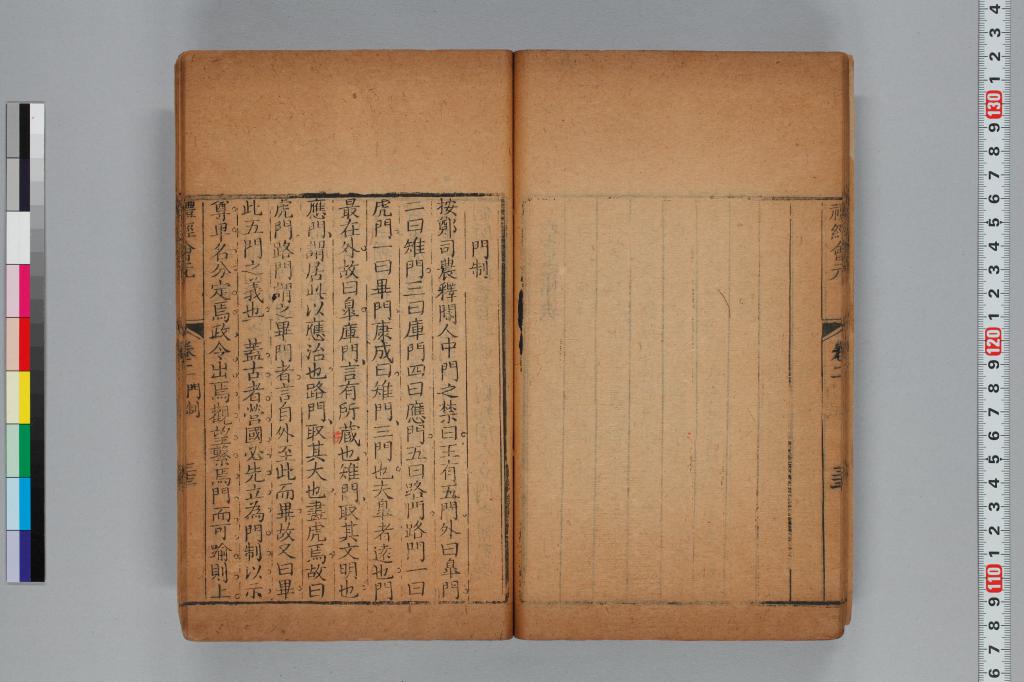 禮經會元
卷二
三三
門制
按鄭司農釋閽人中門之禁曰王有五門外曰臯門
二曰雉門三曰庫門四曰應門五曰路門路門一曰
虎門一曰畢門康成曰雉門三門也夫臯者遠也門
最在外故曰臯庫門言有所藏也雉門取其文明也
應門謂居此以應治也路門取其大也畫虎焉故曰
虎門路門謂之畢門者言自外至此而畢故又曰畢
此五門之義也蓋古者營國必先立為門制以示
尊卑名分定焉政令出焉觀望繫焉門而可踰則上
禮經會元
卷二 門制
三三
4
3
2
1
130
9
8
7
6
5
4
3
2
1
120
9
8
7
6
5
4
3
2
1
110
9
8
7
6